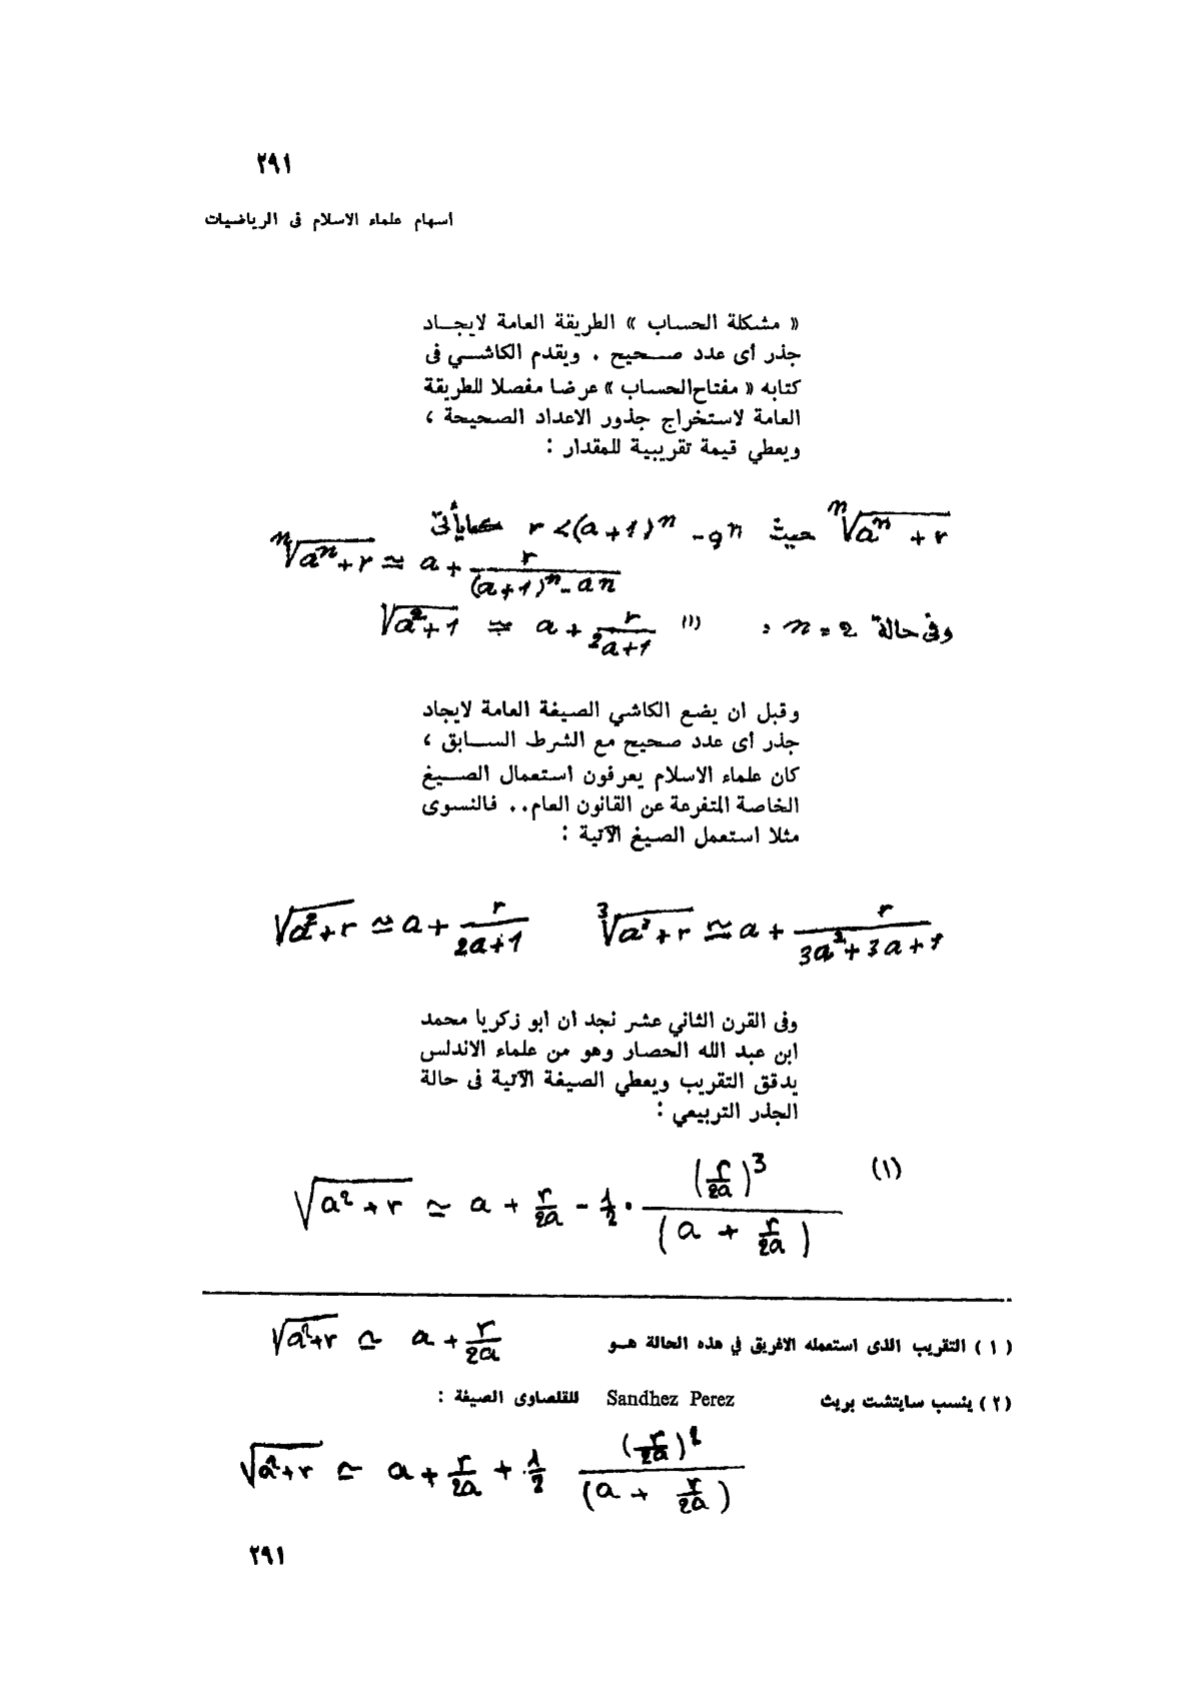 ٢٩١
أسهام علماء الاسلام فى الرياضيات
« مشكلة الحساب » الطريقة العامة لايجـاد
جذر أى عدد صـحيح . ويقدم الكاشـي فى
كتابه « مفتاح الحساب » عرضا مفصلا للطريقة
العامة لاستخراج جذور الاعداد الصحيحة ،
ويعطي قيمة تقريبية للمقدار :
ⁿ√(aⁿ + r) حيث r < (a+1)ⁿ - aⁿ كما يأتى
ⁿ√(aⁿ+r) ≃ a + r/((a+1)ⁿ - aⁿ)
وفى حالة n = 2 : (١) √(a²+1) ≃ a + r/(2a+1)
وقبل ان يضع الكاشي الصيغة العامة لايجاد
جذر أى عدد صحيح مع الشرط السـابق ،
كان علماء الاسلام يعرفون استعمال الصـيغ
الخاصة المتفرعة عن القانون العام .. فالنسوى
مثلا استعمل الصيغ الآتية :
√(a²+r) ≃ a + r/(2a+1) ³√(a³+r) ≃ a + r/(3a²+3a+1)
وفى القرن الثاني عشر نجد ان ابو زكريا محمد
ابن عبد الله الحصار وهو من علماء الاندلس
يدقق التقريب ويعطي الصيغة الآتية فى حالة
الجذر التربيعي :
√(a²+r) ≃ a + r/2a - 1/2 · (r/2a)³/(a + r/2a) (١)
( ١ ) التقريب الذى استعمله الافريق في هذه الحالة هـو √(a²+r) ≃ a + r/2a
( ٢ ) ينسب سايتشت بريث Sandhez Perez للقلصاوى الصيغة :
√(a²+r) ≃ a + r/2a + 1/2 (r/2a)²/(a + r/2a)
٢٩١